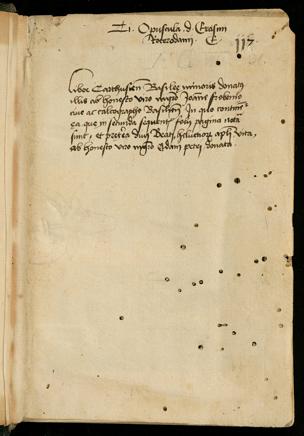 Opuscula. d. Erasmi
Roterodami. E
Liber Carthusiens Basilee minoris donatus
illis ab honesto viro magro Joanne frobenio
cive ac calcographo Basiliensi In quo continentur
ea que in secunda sequentis folii pagina notata
sunt, et preterea Divi Beati, helvetiorum apostoli vita,
ab honesto viro magro Adam petri donata.